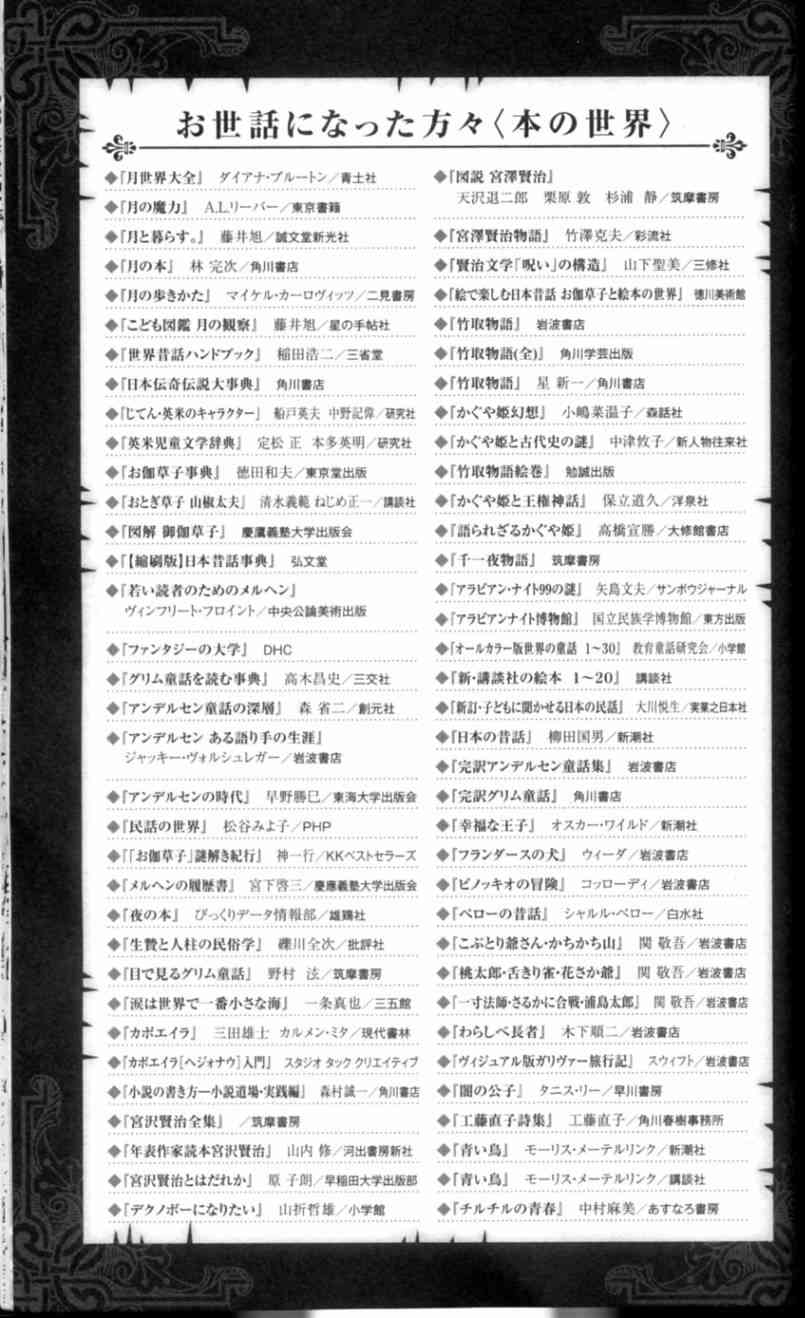 お世話になった方々〈本の世界〉
◆『月世界大全』 ダイアナ・ブルートン／青土社
◆『月の魔力』 A.L.リーバー／東京書籍
◆『月と暮らす。』 藤井旭／誠文堂新光社
◆『月の本』 林 完次／角川書店
◆『月の歩きかた』 マイケル・カーロヴィッツ／二見書房
◆『こども図鑑 月の観察』 藤井旭／星の手帖社
◆『世界昔話ハンドブック』 稲田浩二／三省堂
◆『日本伝奇伝説大事典』 角川書店
◆『じてん・英米のキャラクター』 船戸英夫 中野記偉／研究社
◆『英米児童文学辞典』 定松 正 本多英明／研究社
◆『お伽草子事典』 徳田和夫／東京堂出版
◆『おとぎ草子 山椒太夫』 清水義範 ねじめ正一／講談社
◆『図解 御伽草子』 慶應義塾大学出版会
◆『【縮刷版】日本昔話事典』 弘文堂
◆『若い読者のためのメルヘン』
ヴィンフリート・フロイント／中央公論美術出版
◆『ファンタジーの大学』 DHC
◆『グリム童話を読む事典』 高木昌史／三交社
◆『アンデルセン童話の深層』 森 省二／創元社
◆『アンデルセン ある語り手の生涯』
ジャッキー・ヴォルシュレガー／岩波書店
◆『アンデルセンの時代』 早野勝巳／東海大学出版会
◆『民話の世界』 松谷みよ子／PHP
◆『「お伽草子」謎解き紀行』 神一行／KKベストセラーズ
◆『メルヘンの履歴書』 宮下啓三／慶應義塾大学出版会
◆『夜の本』 びっくりデータ情報部／雄鶏社
◆『生贄と人柱の民俗学』 礫川全次／批評社
◆『目で見るグリム童話』 野村 泫／筑摩書房
◆『涙は世界で一番小さな海』 一条真也／三五館
◆『カポエイラ』 三田雄士 カルメン・ミタ／現代書林
◆『カポエイラ［ヘジォナウ］入門』 スタジオ タック クリエイティブ
◆『小説の書き方―小説道場・実践編』 森村誠一／角川書店
◆『宮沢賢治全集』 ／筑摩書房
◆『年表作家読本宮沢賢治』 山内 修／河出書房新社
◆『宮沢賢治とはだれか』 原 子朗／早稲田大学出版部
◆『デクノボーになりたい』 山折哲雄／小学館
◆『図説 宮澤賢治』
天沢退二郎 栗原 敦 杉浦 静／筑摩書房
◆『宮澤賢治物語』 竹澤克夫／彩流社
◆『賢治文学「呪い」の構造』 山下聖美／三修社
◆『絵で楽しむ日本昔話 お伽草子と絵本の世界』 徳川美術館
◆『竹取物語』 岩波書店
◆『竹取物語(全)』 角川学芸出版
◆『竹取物語』 星 新一／角川書店
◆『かぐや姫幻想』 小嶋菜温子／森話社
◆『かぐや姫と古代史の謎』 中津攸子／新人物往来社
◆『竹取物語絵巻』 勉誠出版
◆『かぐや姫と王権神話』 保立道久／洋泉社
◆『語られざるかぐや姫』 高橋宣勝／大修館書店
◆『千一夜物語』 筑摩書房
◆『アラビアン・ナイト99の謎』 矢島文夫／サンポウジャーナル
◆『アラビアンナイト博物館』 国立民族学博物館／東方出版
◆『オールカラー版世界の童話 1〜30』 教育童話研究会／小学館
◆『新・講談社の絵本 1〜20』 講談社
◆『新訂・子どもに聞かせる日本の民話』 大川悦生／実業之日本社
◆『日本の昔話』 柳田国男／新潮社
◆『完訳アンデルセン童話集』 岩波書店
◆『完訳グリム童話』 角川書店
◆『幸福な王子』 オスカー・ワイルド／新潮社
◆『フランダースの犬』 ウィーダ／岩波書店
◆『ピノッキオの冒険』 コッローディ／岩波書店
◆『ペローの昔話』 シャルル・ペロー／白水社
◆『こぶとり爺さん・かちかち山』 関 敬吾／岩波書店
◆『桃太郎・舌きり雀・花さか爺』 関 敬吾／岩波書店
◆『一寸法師・さるかに合戦・浦島太郎』 関 敬吾／岩波書店
◆『わらしべ長者』 木下順二／岩波書店
◆『ヴィジュアル版ガリヴァー旅行記』 スウィフト／岩波書店
◆『闇の公子』 タニス・リー／早川書房
◆『工藤直子詩集』 工藤直子／角川春樹事務所
◆『青い鳥』 モーリス・メーテルリンク／新潮社
◆『青い鳥』 モーリス・メーテルリンク／講談社
◆『チルチルの青春』 中村麻美／あすなろ書房